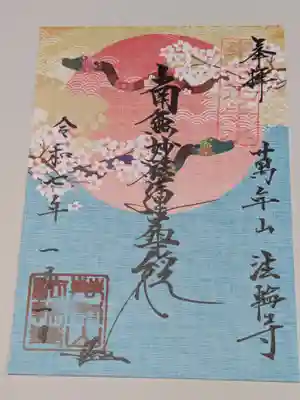 奉拝
萬年山 法輪寺
南無妙法蓮華経
令和七年 一月